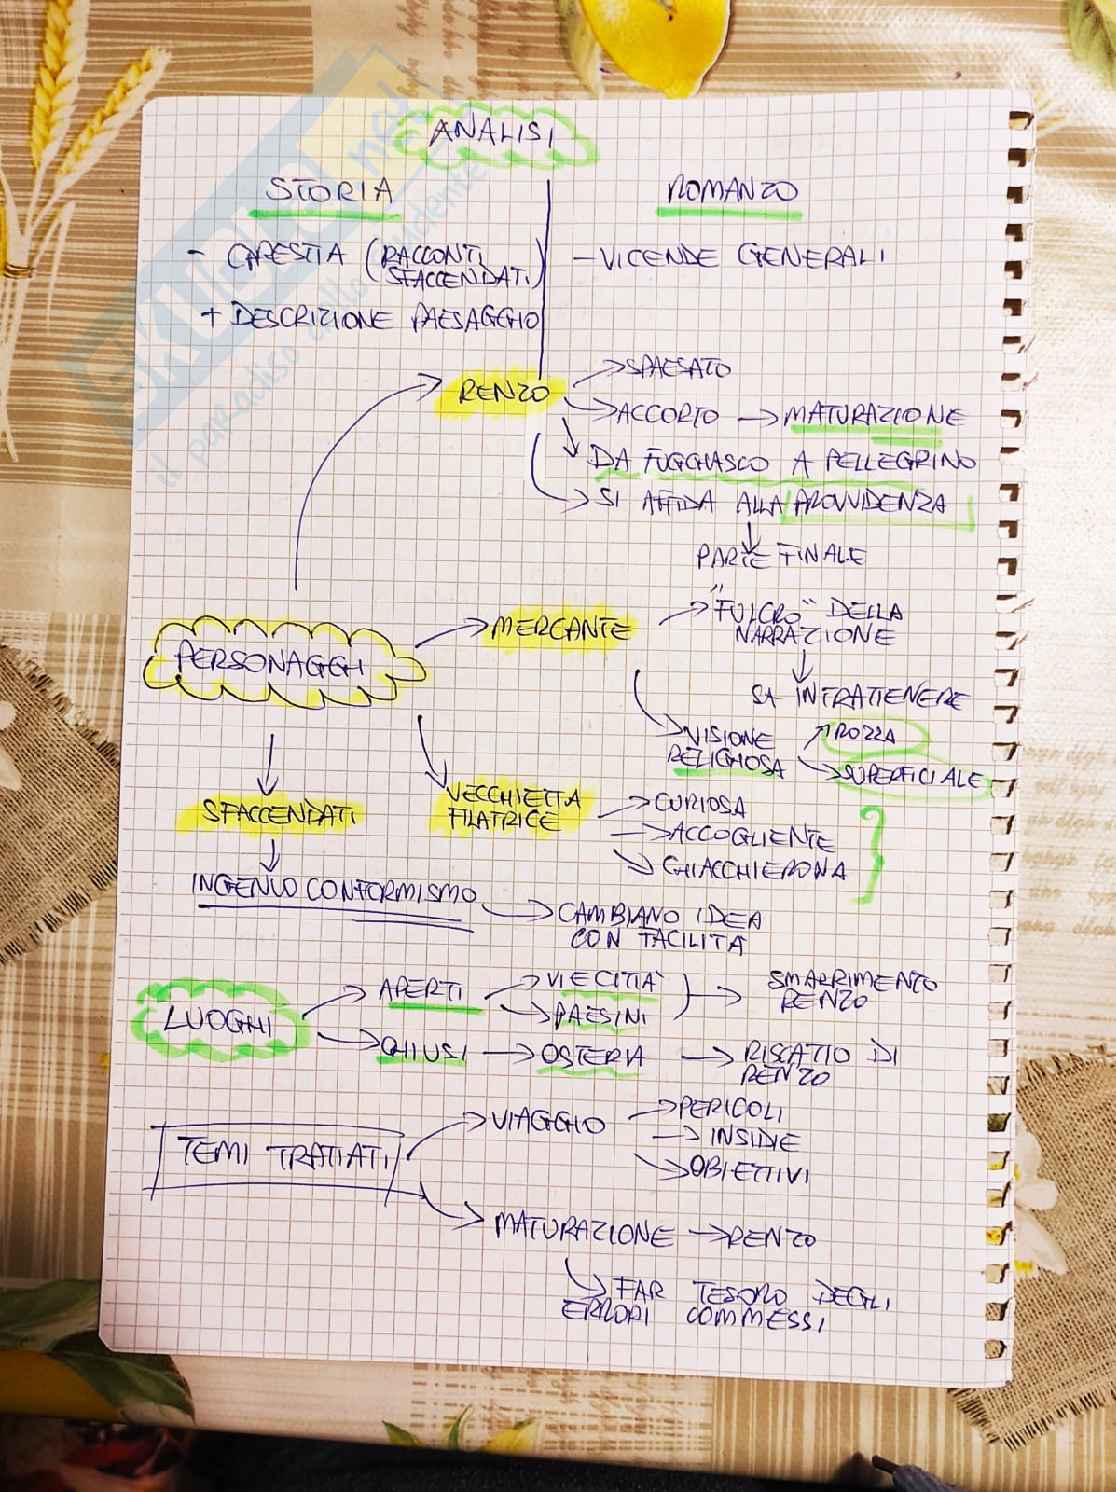 ANALISI
STORIA
ROMANZO
- CARESTIA (RACCONTI SFACCENDATI)
- VICENDE GENERALI
+ DESCRIZIONE PAESAGGIO
RENZO
SPAESATO
ACCORTO → MATURAZIONE
DA FUGGIASCO A PELLEGRINO
SI AFFIDA ALLA PROVVIDENZA
PARTE FINALE
PERSONAGGI
MERCANTE
"FULCRO" DELLA
NARRAZIONE
SA INTRATTENERE
VISIONE
RELIGIOSA
ROZZA
SUPERFICIALE
SFACCENDATI
VECCHIETTA
FILATRICE
CURIOSA
ACCOGLIENTE
CHIACCHIERONA
INGENUO CONFORMISMO
CAMBIANO IDEA
CON FACILITÀ
LUOGHI
APERTI
VIE CITTÀ
PAESINI
SMARRIMENTO
RENZO
CHIUSI → OSTERIA → RISCATTO DI
RENZO
TEMI TRATTATI
VIAGGIO
PERICOLI
INSIDIE
OBIETTIVI
MATURAZIONE → RENZO
FAR TESORO DEGLI
ERRORI COMMESSI
il paradiso dello studente